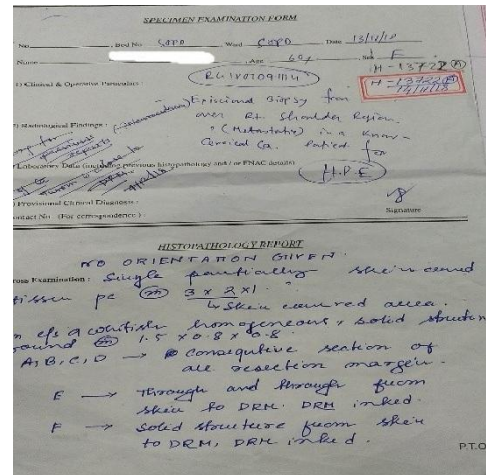 SPECIMEN EXAMINATION FORM
No. Bed No SOPD Ward SOPD Date 13/12/18
Name Age 60y Sex F
H-13722 (A)
1) Clinical & Operative Particulars
H-13722 (A)
Excisional Biopsy from
over Rt. Shoulder Region
2) Radiological Findings :
(Metastatic) in a known
Cervical Ca. Patient for
Laboratory Data (including previous histopathology and / or FNAC details)
H.P.E
) Provisional Clinical Diagnosis :
Contact No. (For correspondence) :
Signature
HISTOPATHOLOGY REPORT
NO ORIENTATION GIVEN.
Gross Examination : Single partially skin cured
tissue pc (m) 3 x 2 x 1.
Skin cured area.
on c/s a whitish homogeneous, solid structure
found (m) 1.5 x 0.8 x 0.8.
A, B, C, D → consequtive section of
all resection margin.
E → Through and through from
skin to DRM. DRM inked.
F → Solid structure from skin
to DRM, DRM inked.
P.T.O